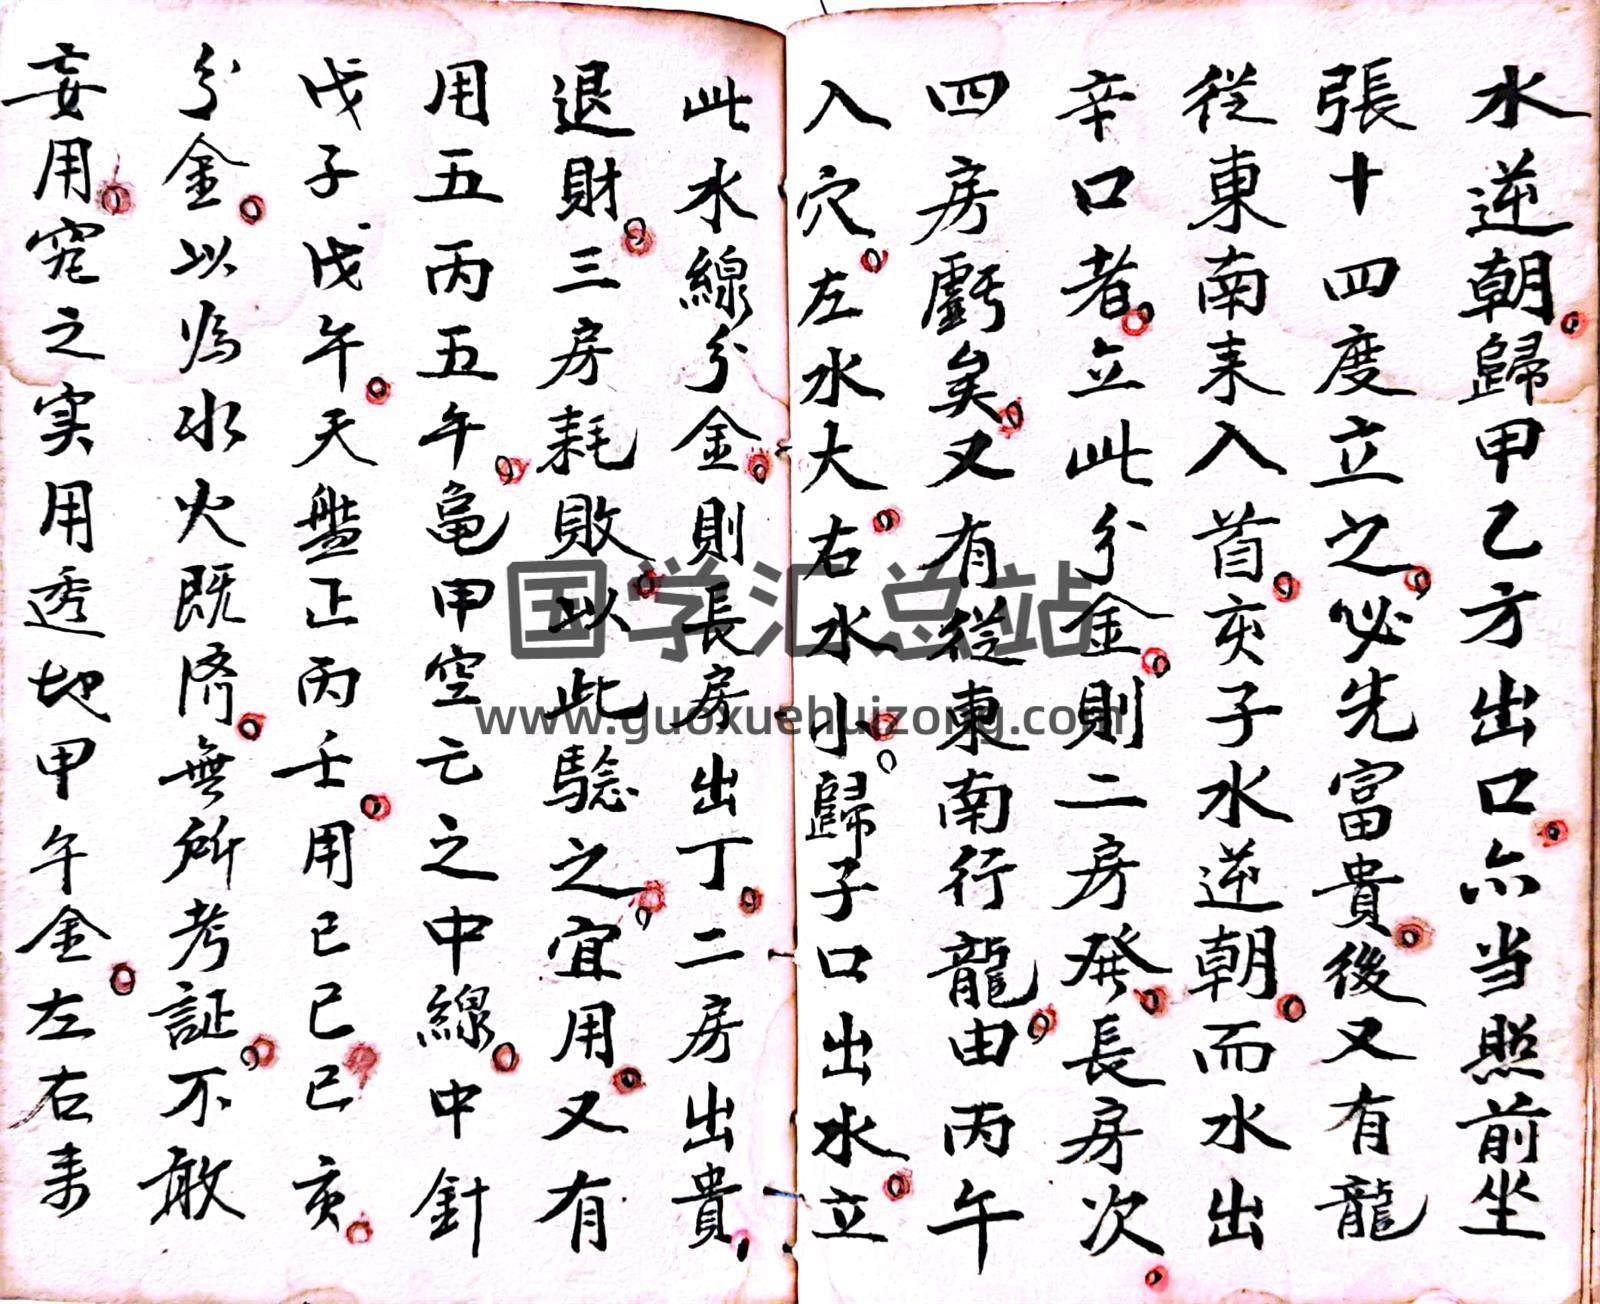 水逆朝。歸甲乙方出口。亦当照前坐
張十四度立之。必先富貴。後又有龍
從東南来入首。亥子水逆朝。而水出
辛口者。立此分金。則二房発。長房次。
四房虧矣。又有從東南行龍。由丙午
入穴。左水大。右水小。歸子口出水。立
此水線分金。則長房出丁。二房出貴。
退財。三房耗敗。以此驗之。宜用。又有
用五丙五午。龜甲空亡之中線。中針
戊子戊午。天盤正丙壬。用己巳己亥。
分金。以為水火既济。無所考証。不敢
妄用。究之实用透地甲午金。左右来
国学汇总站
www.guoxuehuizong.com